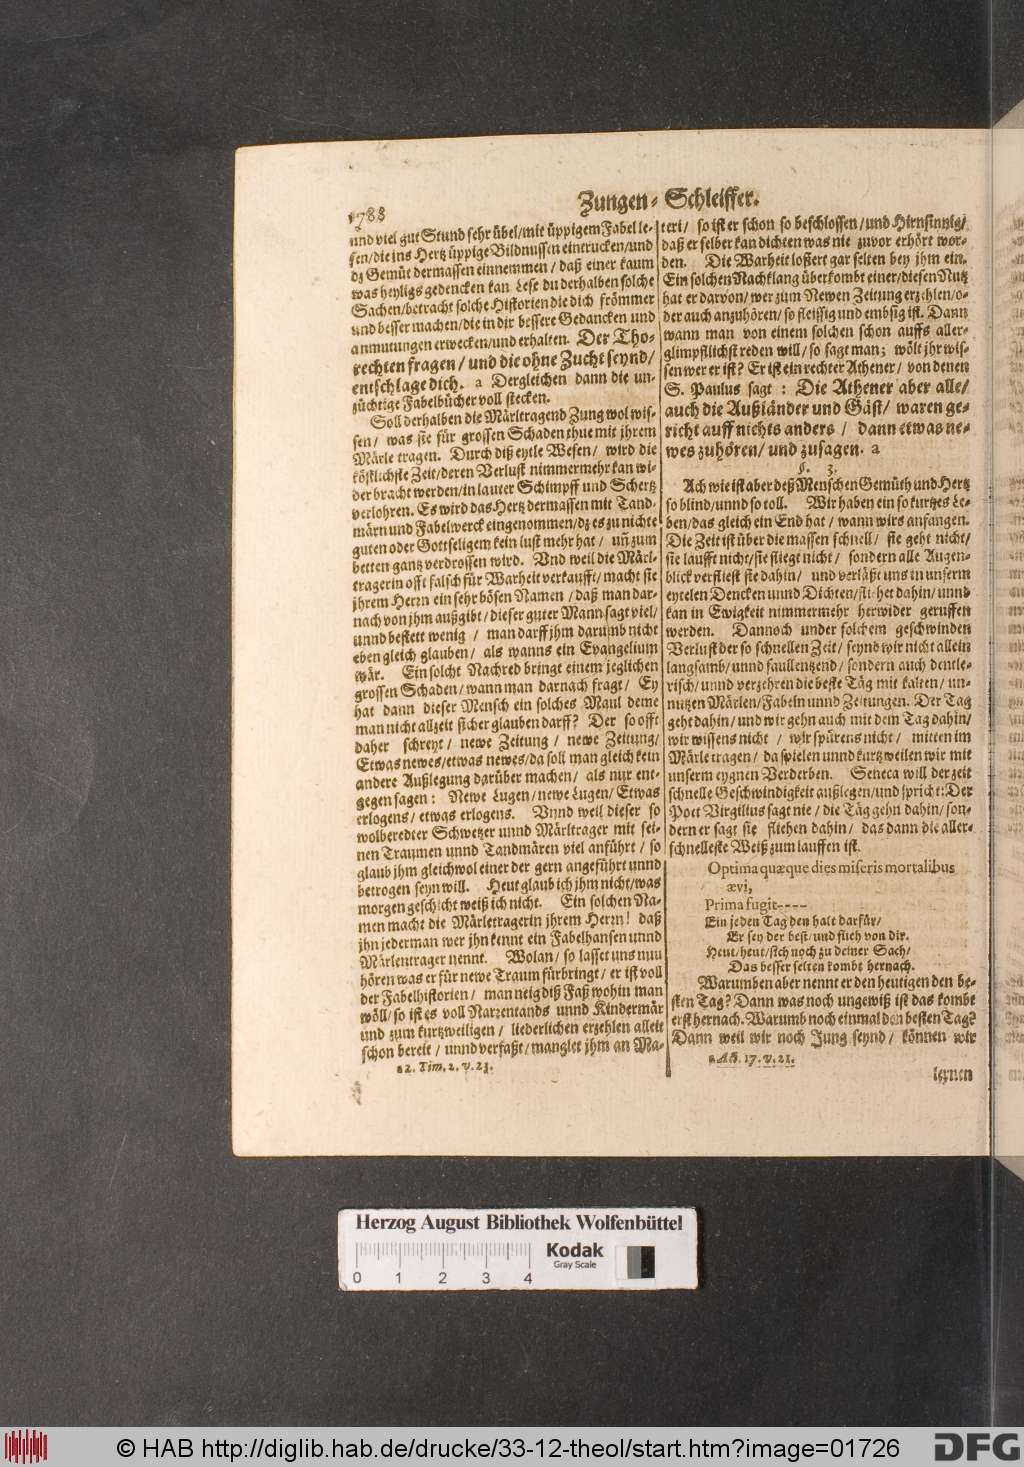 1788
Zungen-Schleiffer.
und viel gut Stund sehr übel/mit üppigem Fabel le-
sen/die ins Hertz üppige Bildnussen eintrucken/und
dz Gemüt dermassen einnemmen/ daß einer kaum
was heyligs gedencken kan Lese du derhalben solche
Sachen/betracht solche Historien die dich frömmer
und besser machen/die in dir bessere Gedancken und
anmutungen erwecken/und erhalten. Der Tho-
rechten fragen/ und die ohne Zucht seynd/
entschlage dich. a Dergleichen dann die un-
züchtige Fabelbücher voll stecken.
Soll derhalben die Märltragend Zung wol wis-
sen/ was sie für grossen Schaden thue mit jhrem
Märle tragen. Durch diß eytle Wesen/ wird die
köstlichste Zeit/deren Verlust nimmermehr kan wi-
der bracht werden/in lauter Schimpff und Schertz
verlohren. Es wird das Hertz dermassen mit Tand-
märn und Fabelwerck eingenommen/dz es zu nichte
guten oder Gottseligem kein lust mehr hat/ uñ zum
betten gantz verdrossen wird. Vnd weil die Märl-
tragerin offt falsch für Warheit verkaufft/ macht sie
jhrem Herrn ein sehr bösen Namen/ daß man dar-
nach von jhm außgibt/dieser guter Mann sagt viel/
unnd bestett wenig / man darff jhm darumb nicht
eben gleich glauben/ als wanns ein Evangelium
wär. Ein solcht Nachred bringt einem jeglichen
grossen Schaden/wann man darnach fragt/ Ey
hat dann dieser Mensch ein solches Maul deme
man nicht allzeit sicher glauben darff? Der so offt
daher schreyt/ newe Zeitung/ newe Zeitung/
Etwas newes/etwas newes/da soll man gleich kein
andere Außlegung darüber machen/ als nur ent-
gegen sagen: Newe Lugen/newe Lugen/Etwas
erlogens/etwas erlogens. Vnnd weil dieser so
wolberedter Schwetzer unnd Märltrager mit sei-
nen Traumen unnd Tandmären viel anführt/ so
glaub jhm gleichwol einer der gern angeführt unnd
betrogen seyn will. Heut glaub ich jhm nicht/was
morgen geschicht weiß ich nicht. Ein solchen Na-
men macht die Märletragerin jhrem Herrn! daß
jhn jederman wer jhn kennt ein Fabelhansen unnd
Märlentrager nennt. Wolan/ so lasset uns nuu
hören was er für newe Traum fürbringt/ er ist voll
der Fabelhistorien/ man neig diß Faß wohin man
wöll/ so ist es voll Narrentands unnd Kindermär
und zum kurtzweiligen/ liederlichen erzehlen alleit
schon bereit/ unnd verfaßt/manglet jhm an Ma-
a 2. Tim. 2. v. 23.
teri/ so ist er schon so beschlossen/und Hirnsinnig/
daß er selber kan dichten was nie zuvor erhört wor-
den. Die Warheit losiert gar selten bey jhm ein.
Ein solchen Nachklang überkombt einer/diesen Nutz
hat er darvon/wer zum Newen Zeitung erzehlen/o-
der auch anzuhören/ so fleissig und embsig ist. Dann
wann man von einem solchen schon auffs aller-
glimpflichst reden will/ so sagt man; wölt jhr wis-
sen wer er ist? Er ist ein rechter Athener/ von denen
S. Paulus sagt : Die Athener aber alle/
auch die Außländer und Gäst/ waren ge-
richt auff nichts anders/ dann etwas ne-
wes zuhören/ und zusagen. a
§. 3.
Ach wie ist aber deß Menschen Gemüth und Hertz
so blind/unnd so toll. Wir haben ein so kurtzes Le-
ben/das gleich ein End hat/ wann wirs anfangen.
Die Zeit ist über die massen schnell/ sie geht nicht/
sie laufft nicht/sie fliegt nicht/ sondern alle Augen-
blick verfliest sie dahin/ und verläßt uns in unserm
eytelen Dencken unnd Dichten/flihet dahin/ unnd
kan in Ewigkeit nimmermehr herwider geruffen
werden. Dannoch under solchem geschwinden
Verlust der so schnellen Zeit/ seynd wir nicht allein
langsamb/unnd faullentzend/ sondern auch dentle-
risch/ unnd verzehren die beste Täg mit kalten/ un-
nutzen Märlen/Fabeln unnd Zeitungen. Der Tag
geht dahin/und wir gehn auch mit dem Tag dahin/
wir wissens nicht / wir spürens nicht/ mitten im
Märle tragen/ da spielen unnd kurtzweilen wir mit
unserm eygnen Verderben. Seneca will der zeit
schnelle Geschwindigkeit außlegen/und spricht: Der
Poet Virgilius sagt nie/ die Täg gehn dahin/ son-
dern er sagt sie fliehen dahin/ das dann die aller-
schnelleste Weiß zum lauffen ist.
Optima quæque dies miseris mortalibus
ævi,
Prima fugit----
Ein jeden Tag den halt darfür/
Er sey der best/und flieh von dir.
Heut/heut/sich noch zu deiner Sach/
Das besser selten kombt hernach.
Warumben aber nennt er den heutigen den be-
sten Tag? Dann was noch ungewiß ist das kombt
erst hernach. Warumb noch einmal den besten Tag?
Dann weil wir noch Jung seynd/ können wir
a Act. 17. v. 21.
lernen
Herzog August Bibliothek Wolfenbüttel
Kodak
Gray Scale
0 1 2 3 4
© HAB http://diglib.hab.de/drucke/33-12-theol/start.htm?image=01726
DFG